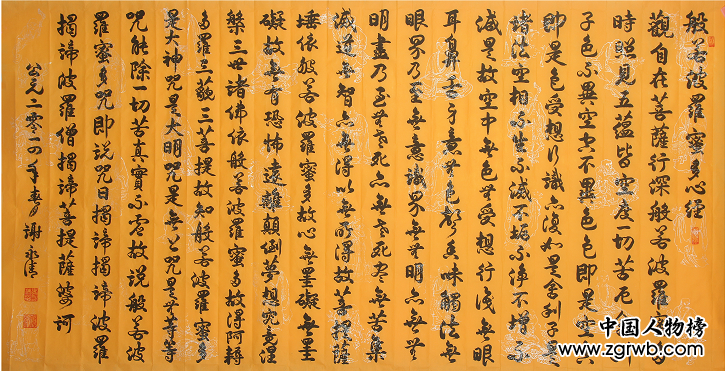 般若波羅蜜多心經
觀自在菩薩行深般若波羅蜜多
時照見五蘊皆空度一切苦厄舍利
子色不異空空不異色色即是空空
即是色受想行識亦復如是舍利子是
諸法空相不生不滅不垢不淨不增不
減是故空中無色無受想行識無眼
耳鼻舌身意無色聲香味觸法無
眼界乃至無意識界無無明亦無無
明盡乃至無老死亦無老死盡無苦集
滅道無智亦無得以無所得故菩提薩
埵依般若波羅蜜多故心無罣礙無罣
礙故無有恐怖遠離顛倒夢想究竟涅
槃三世諸佛依般若波羅蜜多故得阿耨
多羅三藐三菩提故知般若波羅蜜多
是大神咒是大明咒是無上咒是無等等
咒能除一切苦真實不虛故說般若波
羅蜜多咒即說咒曰揭諦揭諦波羅
揭諦波羅僧揭諦菩提薩婆訶
公元二零一四年春月謝永清
中国人物榜
www.zgrwb.com